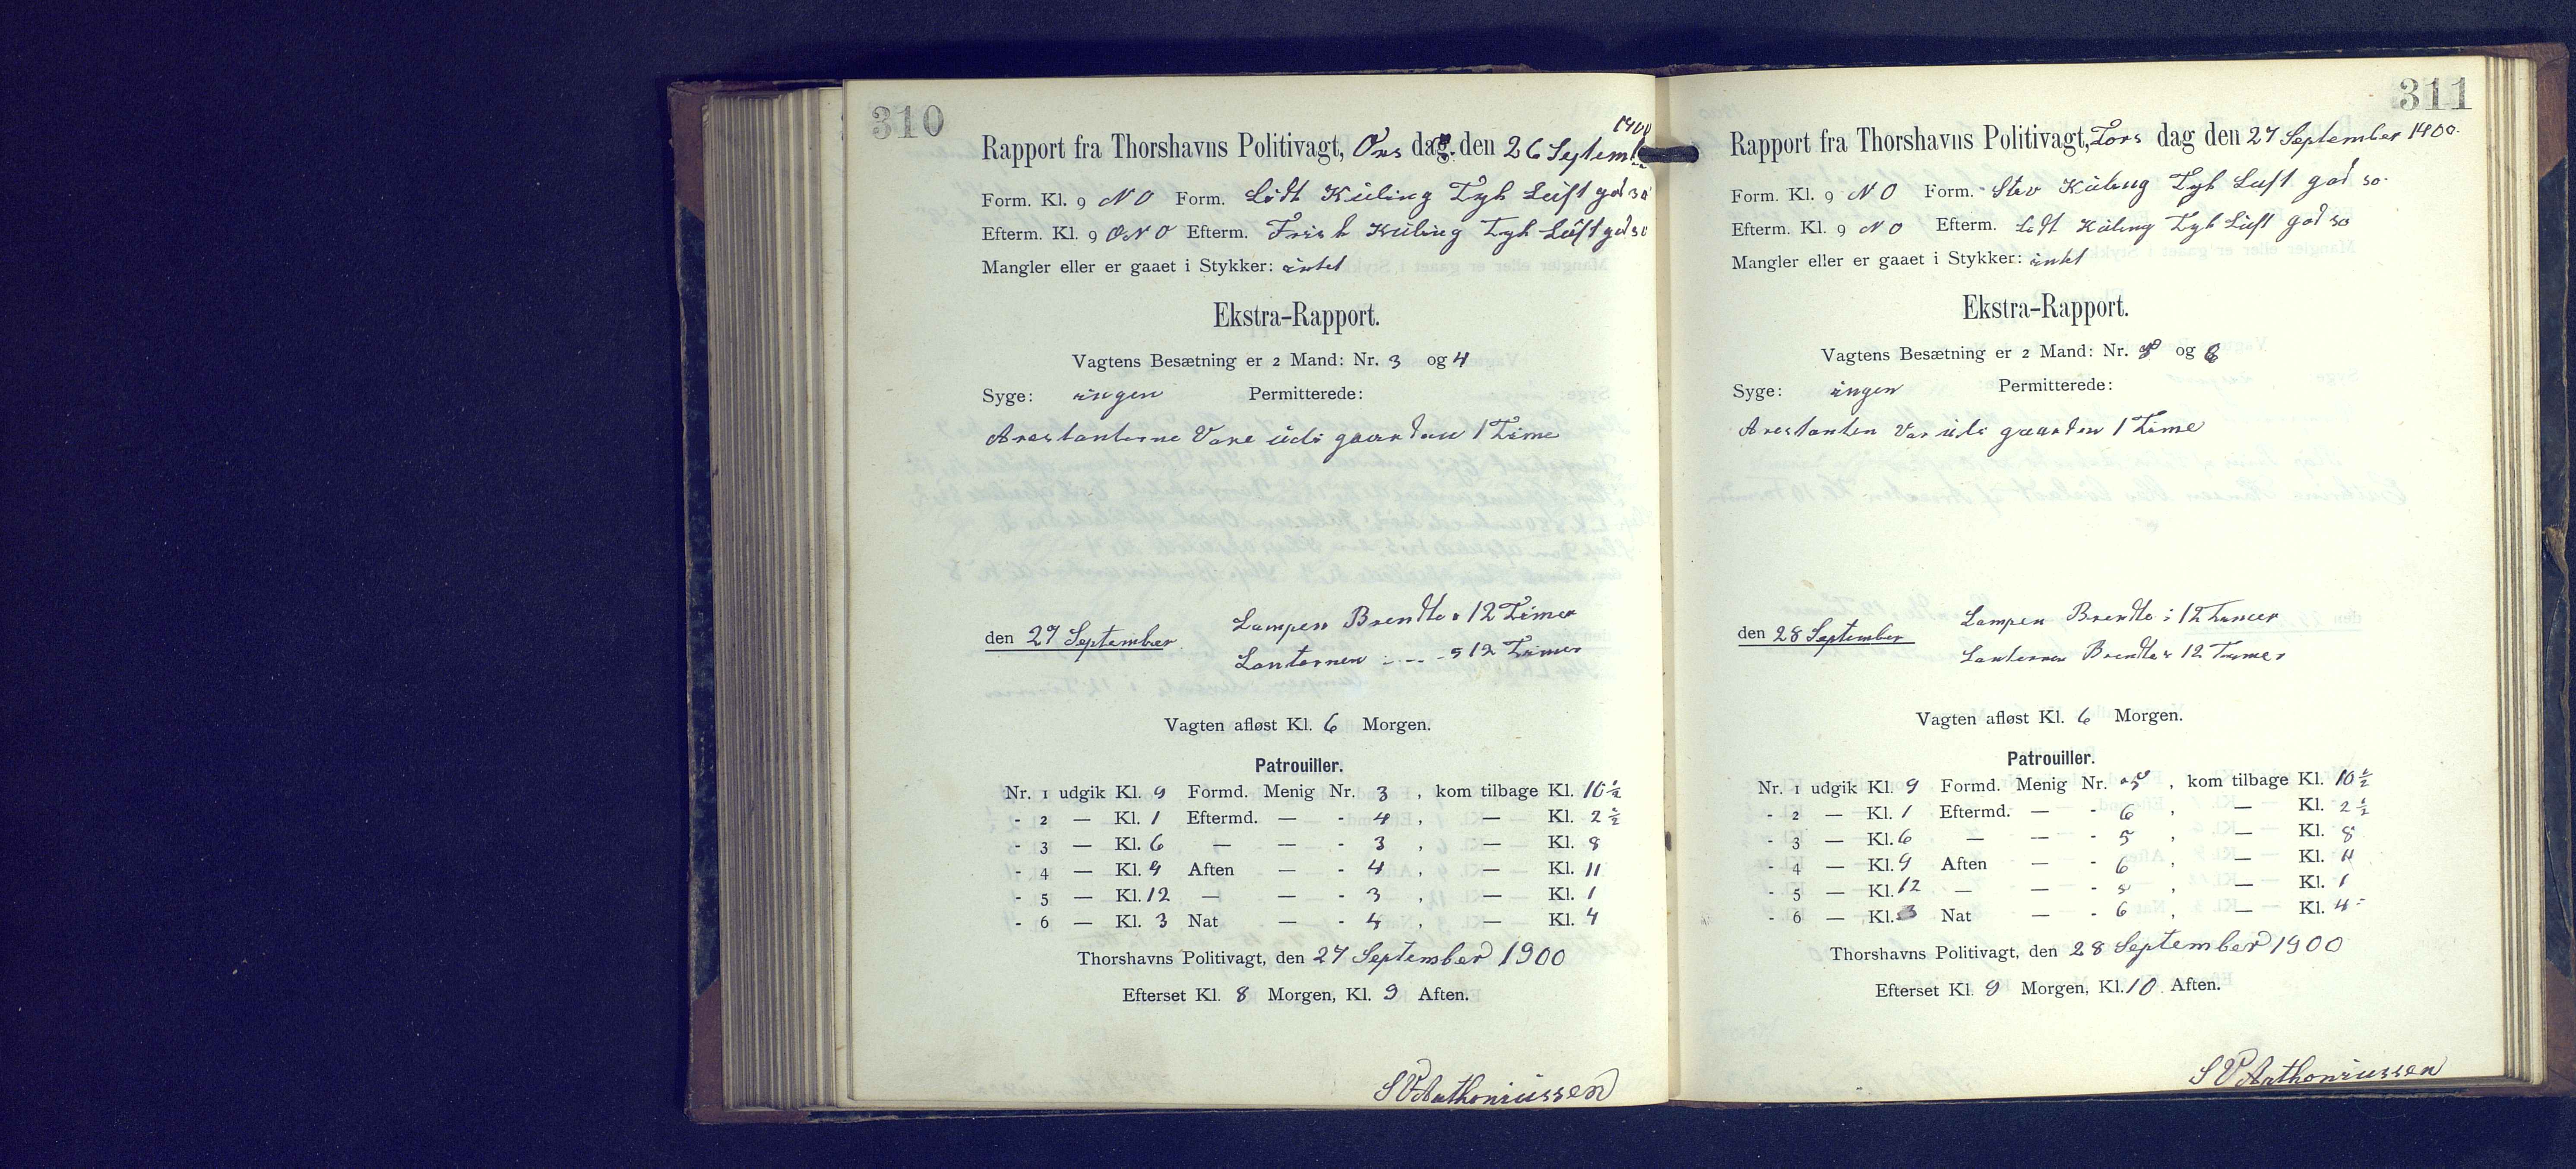 310
1900
Rapport fra Thorshavns Politivagt, Ons dag. den 26 Septemb
Form. Kl. 9 NO Form. Lidt Kuling Tyk Luft god so
Efterm. Kl. 9 ONO Efterm. Frisk Kuling Tyk Luft god so
Mangler eller er gaaet i Stykker: intet
Ekstra-Rapport.
Vagtens Besætning er 2 Mand: Nr. 3 og 4
Syge: ingen Permitterede:
Arestanterne Vare udi gaarden 1 Time
den 27 September Lampen Brendte i 12 Timer
Lanternen - - - 12 Timer
Vagten afløst Kl. 6 Morgen.
Patrouiller.
Nr. 1 udgik Kl. 9 Formd. Menig Nr. 3 , kom tilbage Kl. 10½
- 2 — Kl. 1 Eftermd. — - 4 , — Kl. 2½
- 3 — Kl. 6 — — - 3 , — Kl. 8
- 4 — Kl. 9 Aften — - 4 , — Kl. 11
- 5 — Kl. 12 — — - 3 , — Kl. 1
- 6 — Kl. 3 Nat — - 4 , — Kl. 4
Thorshavns Politivagt, den 27 September 1900
Efterset Kl. 8 Morgen, Kl. 9 Aften.
S V Anthoniussen
311
Rapport fra Thorshavns Politivagt, Tors dag den 27 September 1900.
Form. Kl. 9 NO Form. Stiv Kuling Tyk Luft god so.
Efterm. Kl. 9 NO Efterm. Lidt Kuling Tyk Luft god so
Mangler eller er gaaet i Stykker: intet
Ekstra-Rapport.
Vagtens Besætning er 2 Mand: Nr. 5 og 6
Syge: ingen Permitterede:
Arestanten Var udi gaarden 1 Time
den 28 September Lampen Brendte i 12 Timer
Lanternen Brendte i 12 Timer
Vagten afløst Kl. 6 Morgen.
Patrouiller.
Nr. 1 udgik Kl. 9 Formd. Menig Nr. 5 , kom tilbage Kl. 10½
- 2 — Kl. 1 Eftermd. — - 6 , — Kl. 2½
- 3 — Kl. 6 — — - 5 , — Kl. 8
- 4 — Kl. 9 Aften — - 6 , — Kl. 11
- 5 — Kl. 12 — — - 5 , — Kl. 1
- 6 — Kl. 3 Nat — - 6 , — Kl. 4
Thorshavns Politivagt, den 28 September 1900
Efterset Kl. 9 Morgen, Kl. 10 Aften.
S V Anthoniussen